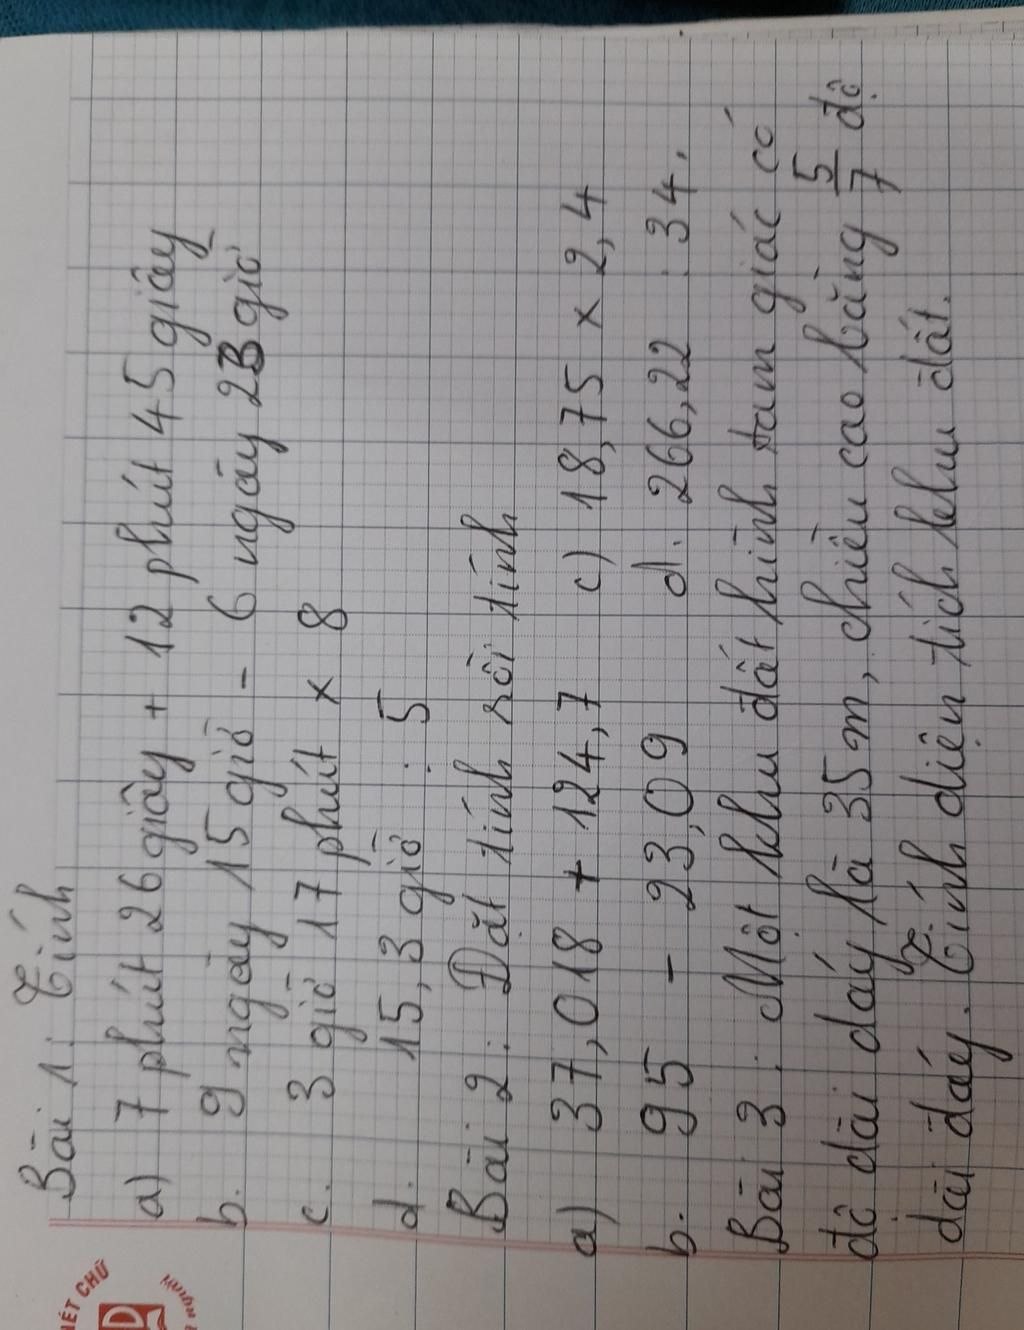 Bài 1: Tính
a) 7 phút 26 giây + 12 phút 45 giây
b. 9 ngày 15 giờ - 6 ngày 23 giờ
c. 3 giờ 17 phút x 8
d. 15,3 giờ : 5
Bài 2: Đặt tính rồi tính
a) 37,018 + 124,7 c) 18,75 x 2,4
b. 95 - 23,09 d. 266,22 : 34.
Bài 3. Một khu đất hình tam giác có
độ dài đáy là 35m, chiều cao bằng 5/7 độ
dài đáy. Tính diện tích khu đất.
ẾT CHỮ